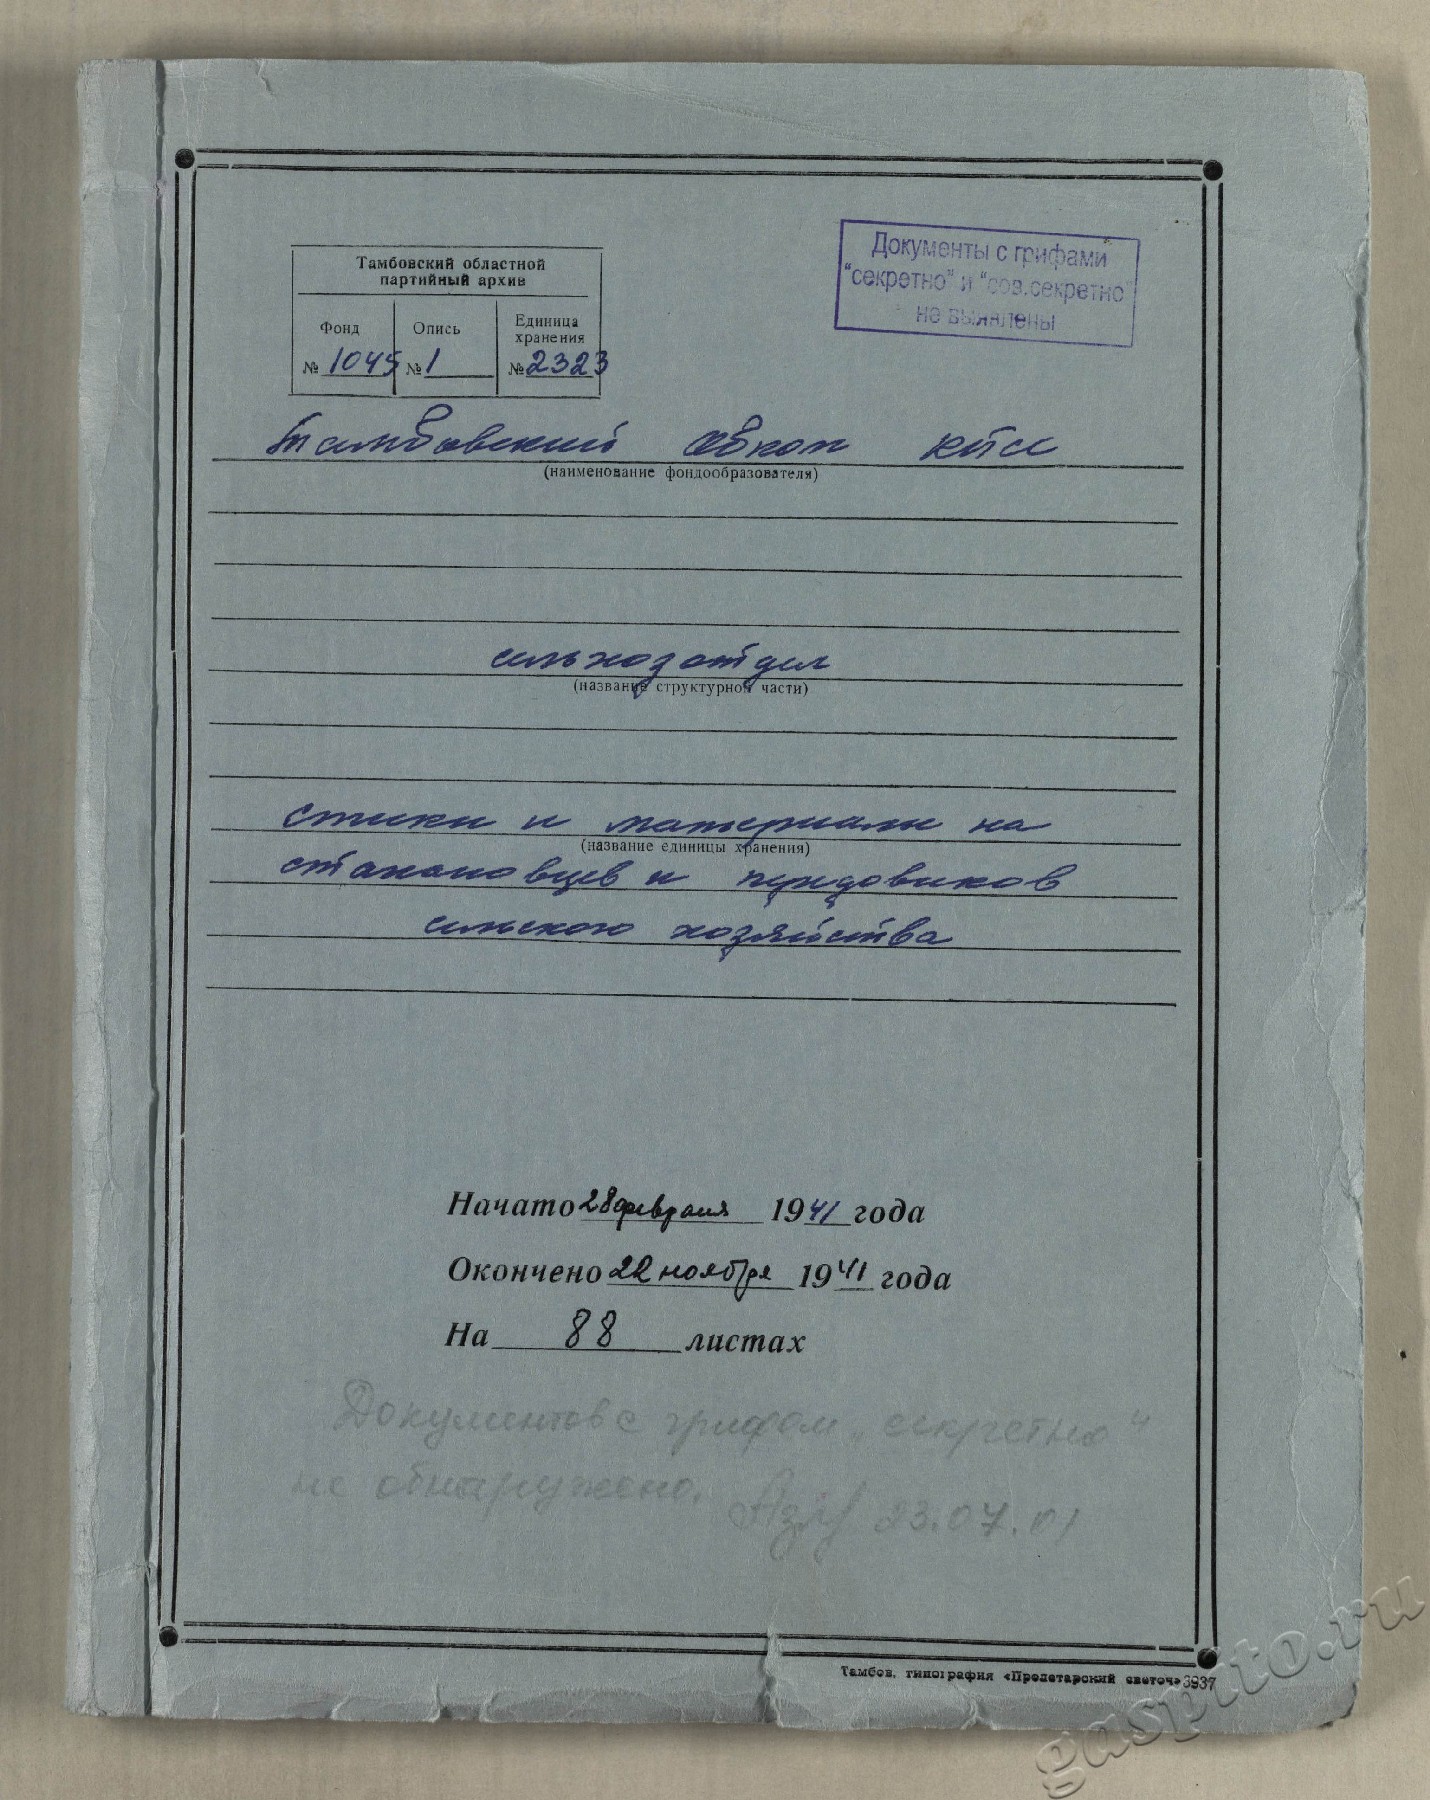 Тамбовский областной
партийный архив
Фонд Опись Единица хранения
№ 1045 № 1 № 2323
Документы с грифами
“секретно” и “сов.секретно”
не выявлены
Тамбовский Обком КПСС
(наименование фондообразователя)
сельхозотдел
(название структурной части)
списки и материалы на
(название единицы хранения)
стахановцев и передовиков
сельского хозяйства
Начато 28 февраля 1941 года
Окончено 22 ноября 1941 года
На 88 листах
Документов с грифом „секретно“
не обнаружено.
23.07.01
Тамбов, типография «Пролетарский светоч» 3937
gaspito.ru